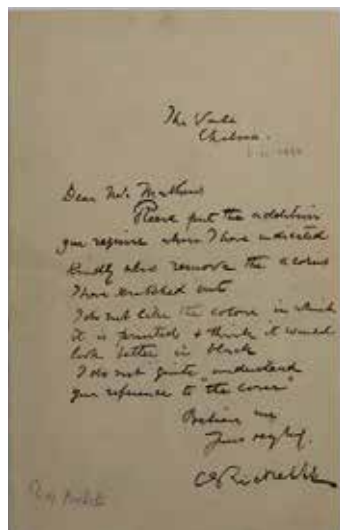 The Vale
Chelsea.
Dear Mr. Mathews
Please put the addition
you require where I have indicated
Kindly also remove the acorns
I have scratched out
I do not like the colour in which
it is printed & think it would
look better in black
I do not quite understand
your reference to "the cover"
Believe me
Yours
C Ricketts